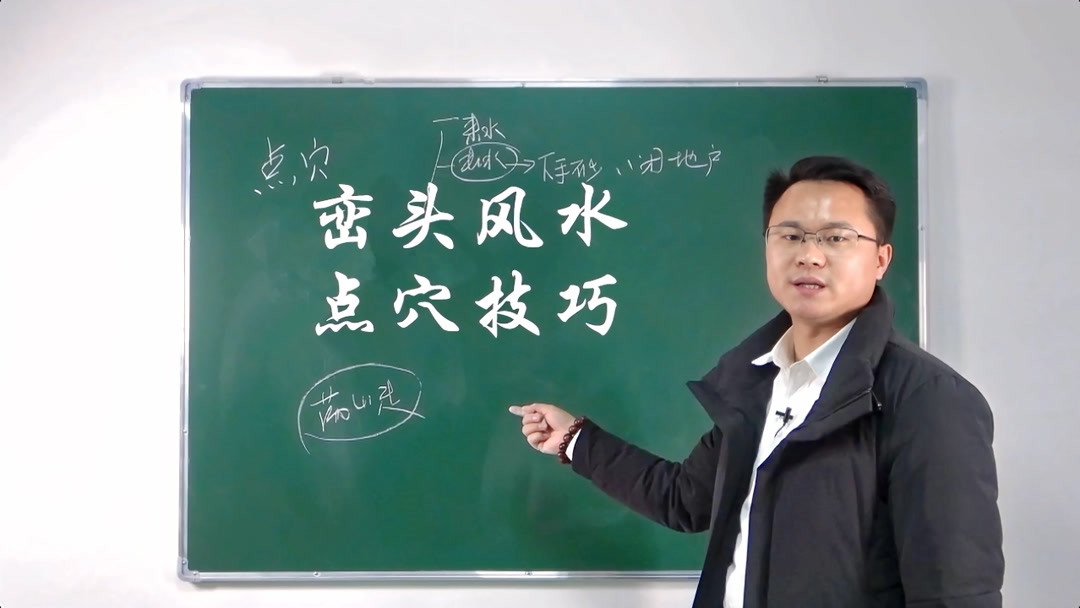 来水
点穴
去水 → 下手砂 闭地户
峦头风水
点穴技巧